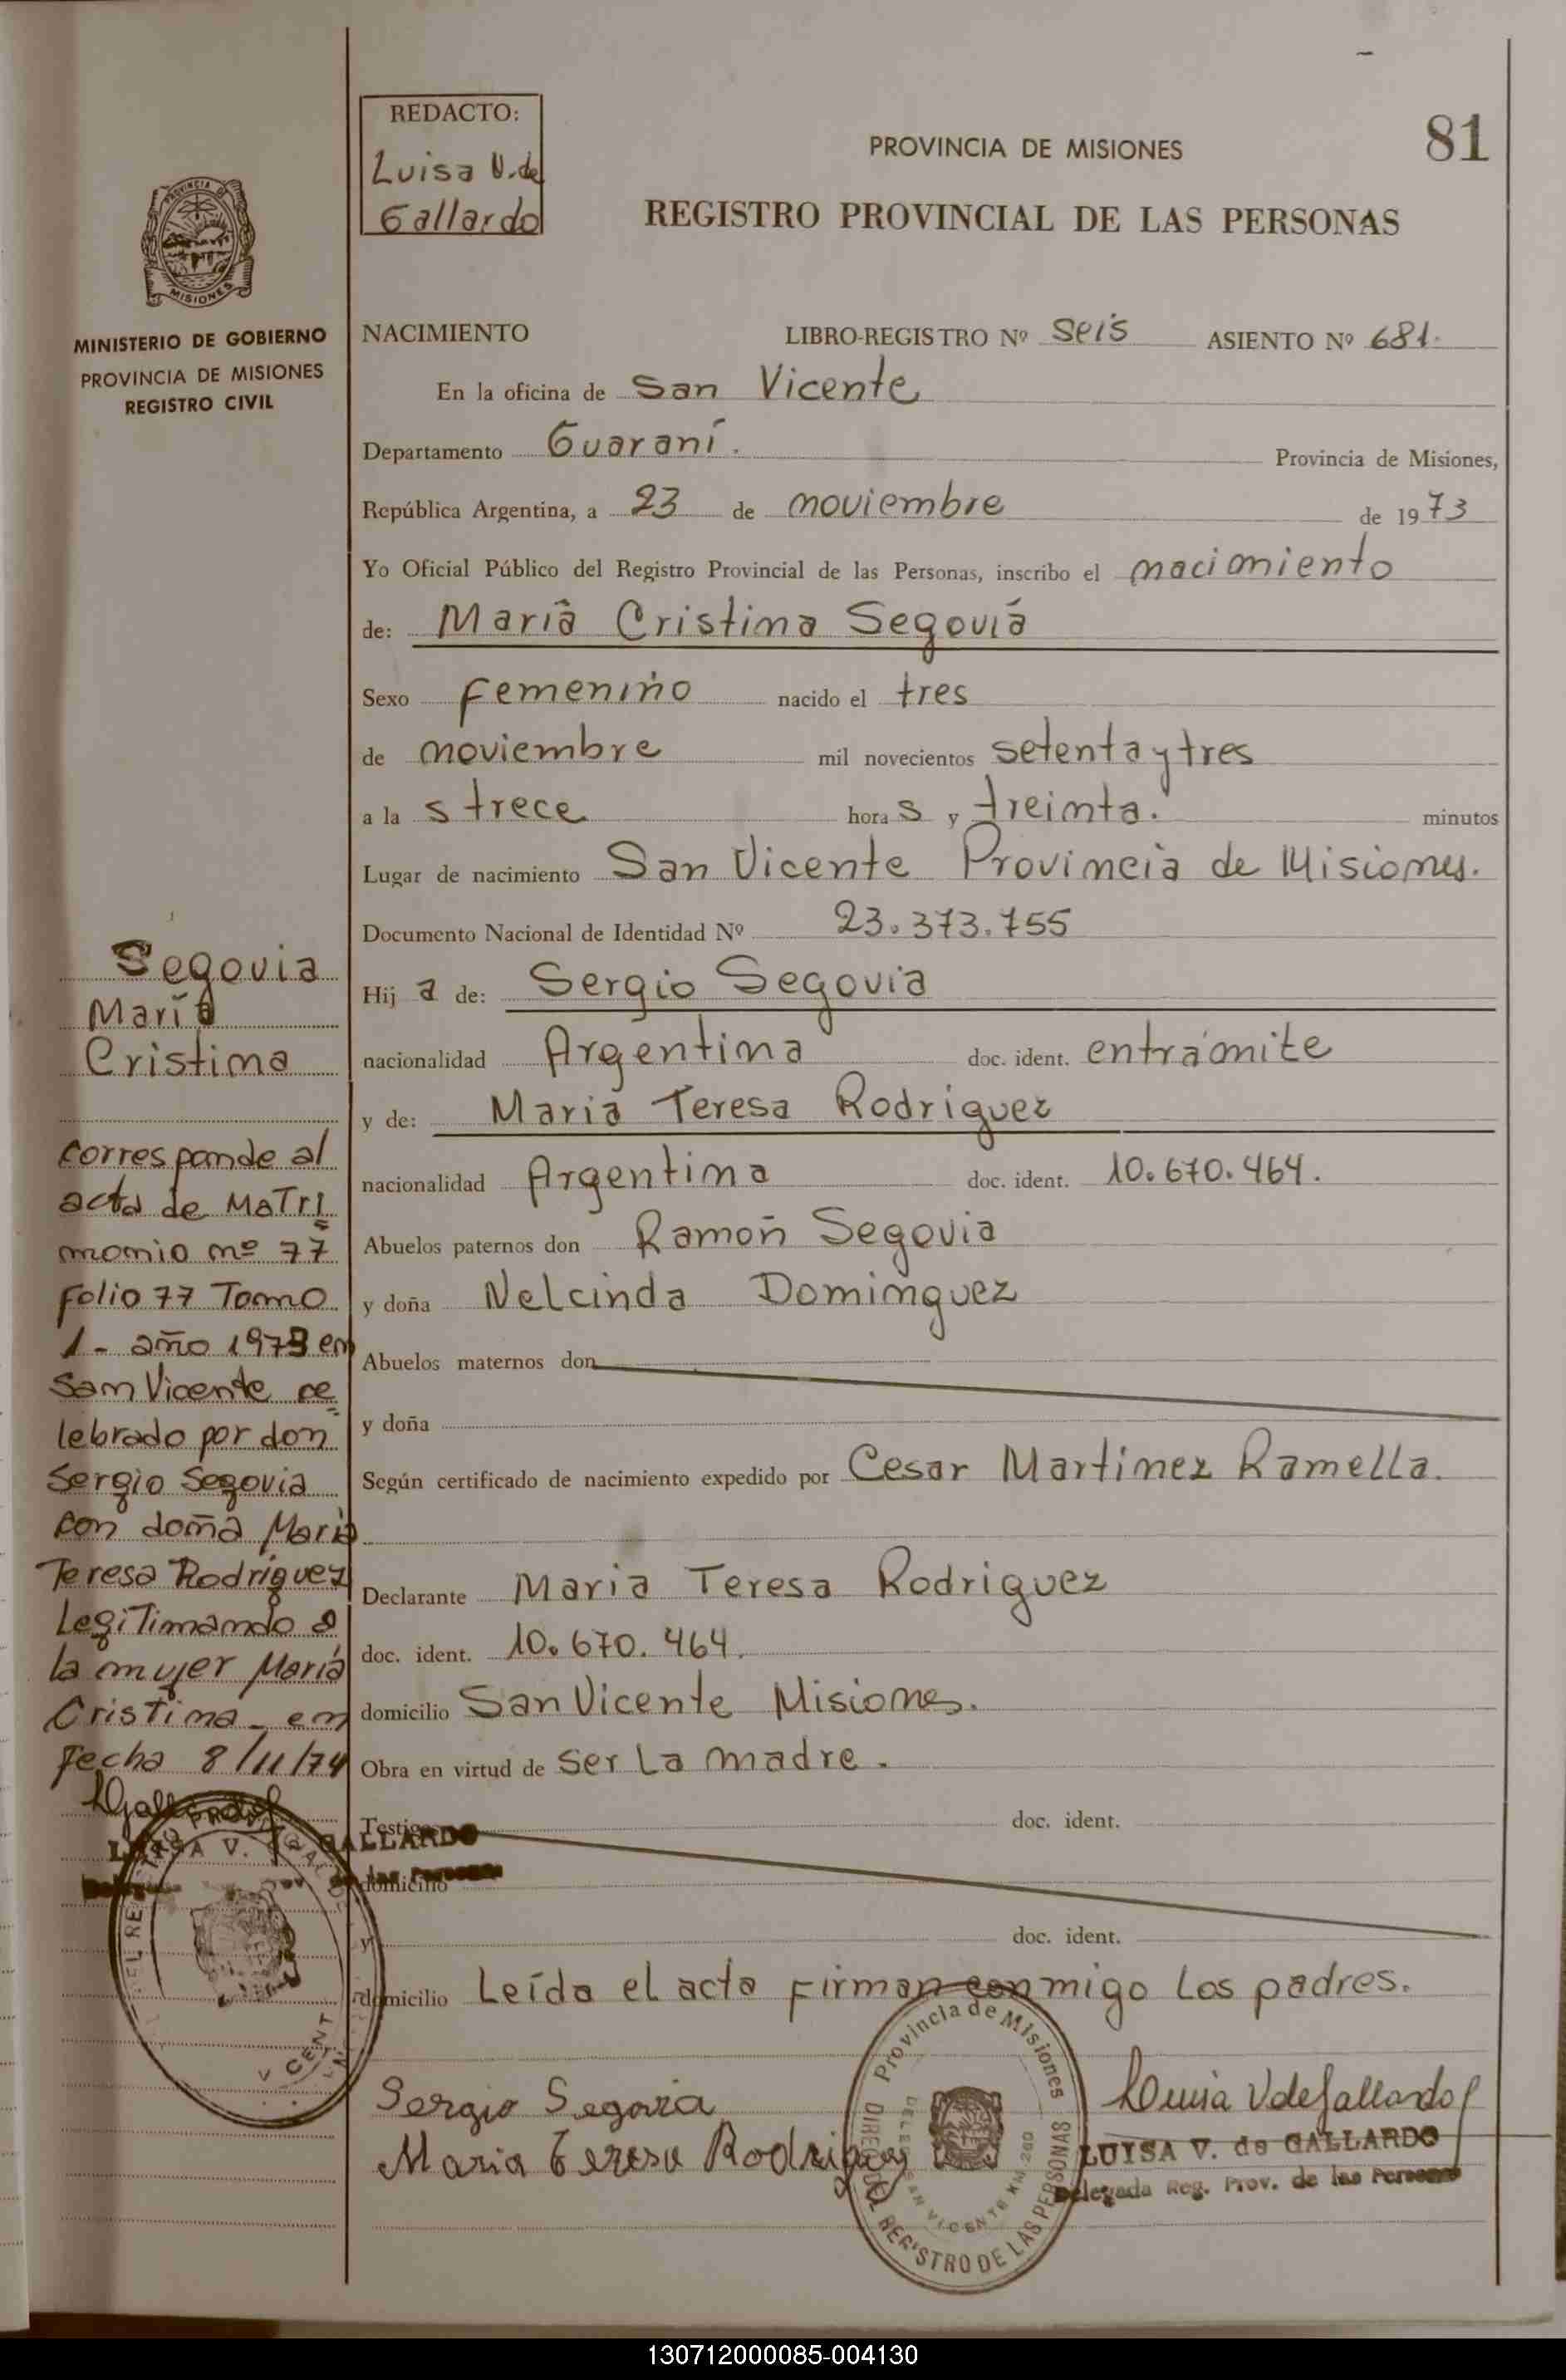 81
REDACTO:
Luisa V. de
Gallardo
PROVINCIA DE MISIONES
REGISTRO PROVINCIAL DE LAS PERSONAS
MISIONES
MINISTERIO DE GOBIERNO
PROVINCIA DE MISIONES
REGISTRO CIVIL
NACIMIENTO LIBRO-REGISTRO Nº Seis ASIENTO Nº 681.
En la oficina de San Vicente
Departamento Guaraní. Provincia de Misiones,
República Argentina, a 23 de noviembre de 1973
Yo Oficial Público del Registro Provincial de las Personas, inscribo el nacimiento
de: María Cristina Segovia
Sexo Femenino nacido el tres
de noviembre mil novecientos setenta y tres
a las trece horas y treinta. minutos
Lugar de nacimiento San Vicente Provincia de Misiones.
Documento Nacional de Identidad Nº 23.373.755
Hija de: Sergio Segovia
nacionalidad Argentina doc. ident. entrámite
y de: Maria Teresa Rodriguez
nacionalidad Argentina doc. ident. 10.670.464.
Abuelos paternos don Ramón Segovia
y doña Nelcinda Dominguez
Abuelos maternos don
y doña
Según certificado de nacimiento expedido por Cesar Martinez Ramella.
Declarante Maria Teresa Rodriguez
doc. ident. 10.670.464.
domicilio San Vicente Misiones.
Obra en virtud de ser La madre.
Testigo doc. ident.
domicilio
y doc. ident.
domicilio Leída el acta firman conmigo Los padres.
Sergio Segovia
Maria Teresa Rodriguez
Luisa V de Gallardo
LUISA V. de GALLARDO
Delegada Reg. Prov. de las Personas
Provincia de Misiones
REGISTRO DE LAS PERSONAS
SAN VICENTE KM 260
Segovia
María
Cristina
corresponde al
acta de Matri
monio nº 77
folio 77 Tomo
1- año 1973 en
San Vicente ce
lebrado por don
Sergio Segovia
con doña María
Teresa Rodríguez
Legitimando a
la mujer María
Cristina - en
fecha 8/11/74
GALLARDO
130712000085-004130